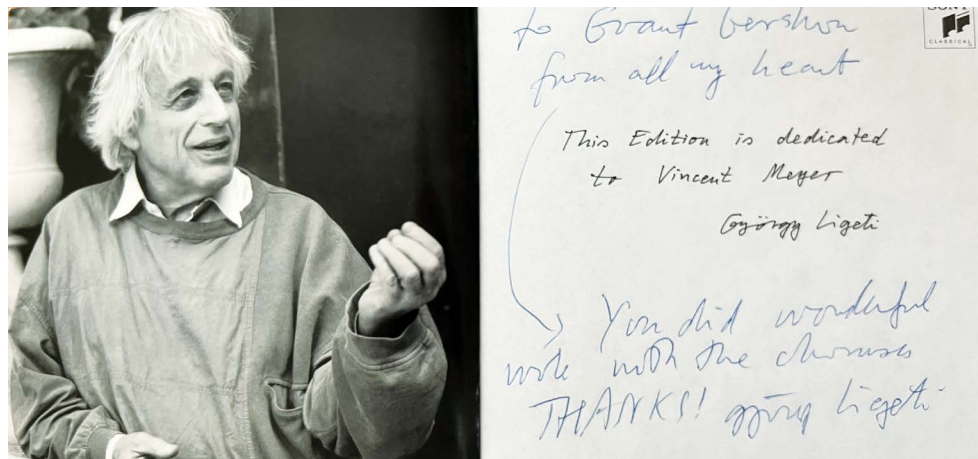 SONY
CLASSICAL
to Grant Gershon
from all my heart
This Edition is dedicated
to Vincent Meyer
György Ligeti
You did wonderful
work with the choruses
THANKS! György Ligeti